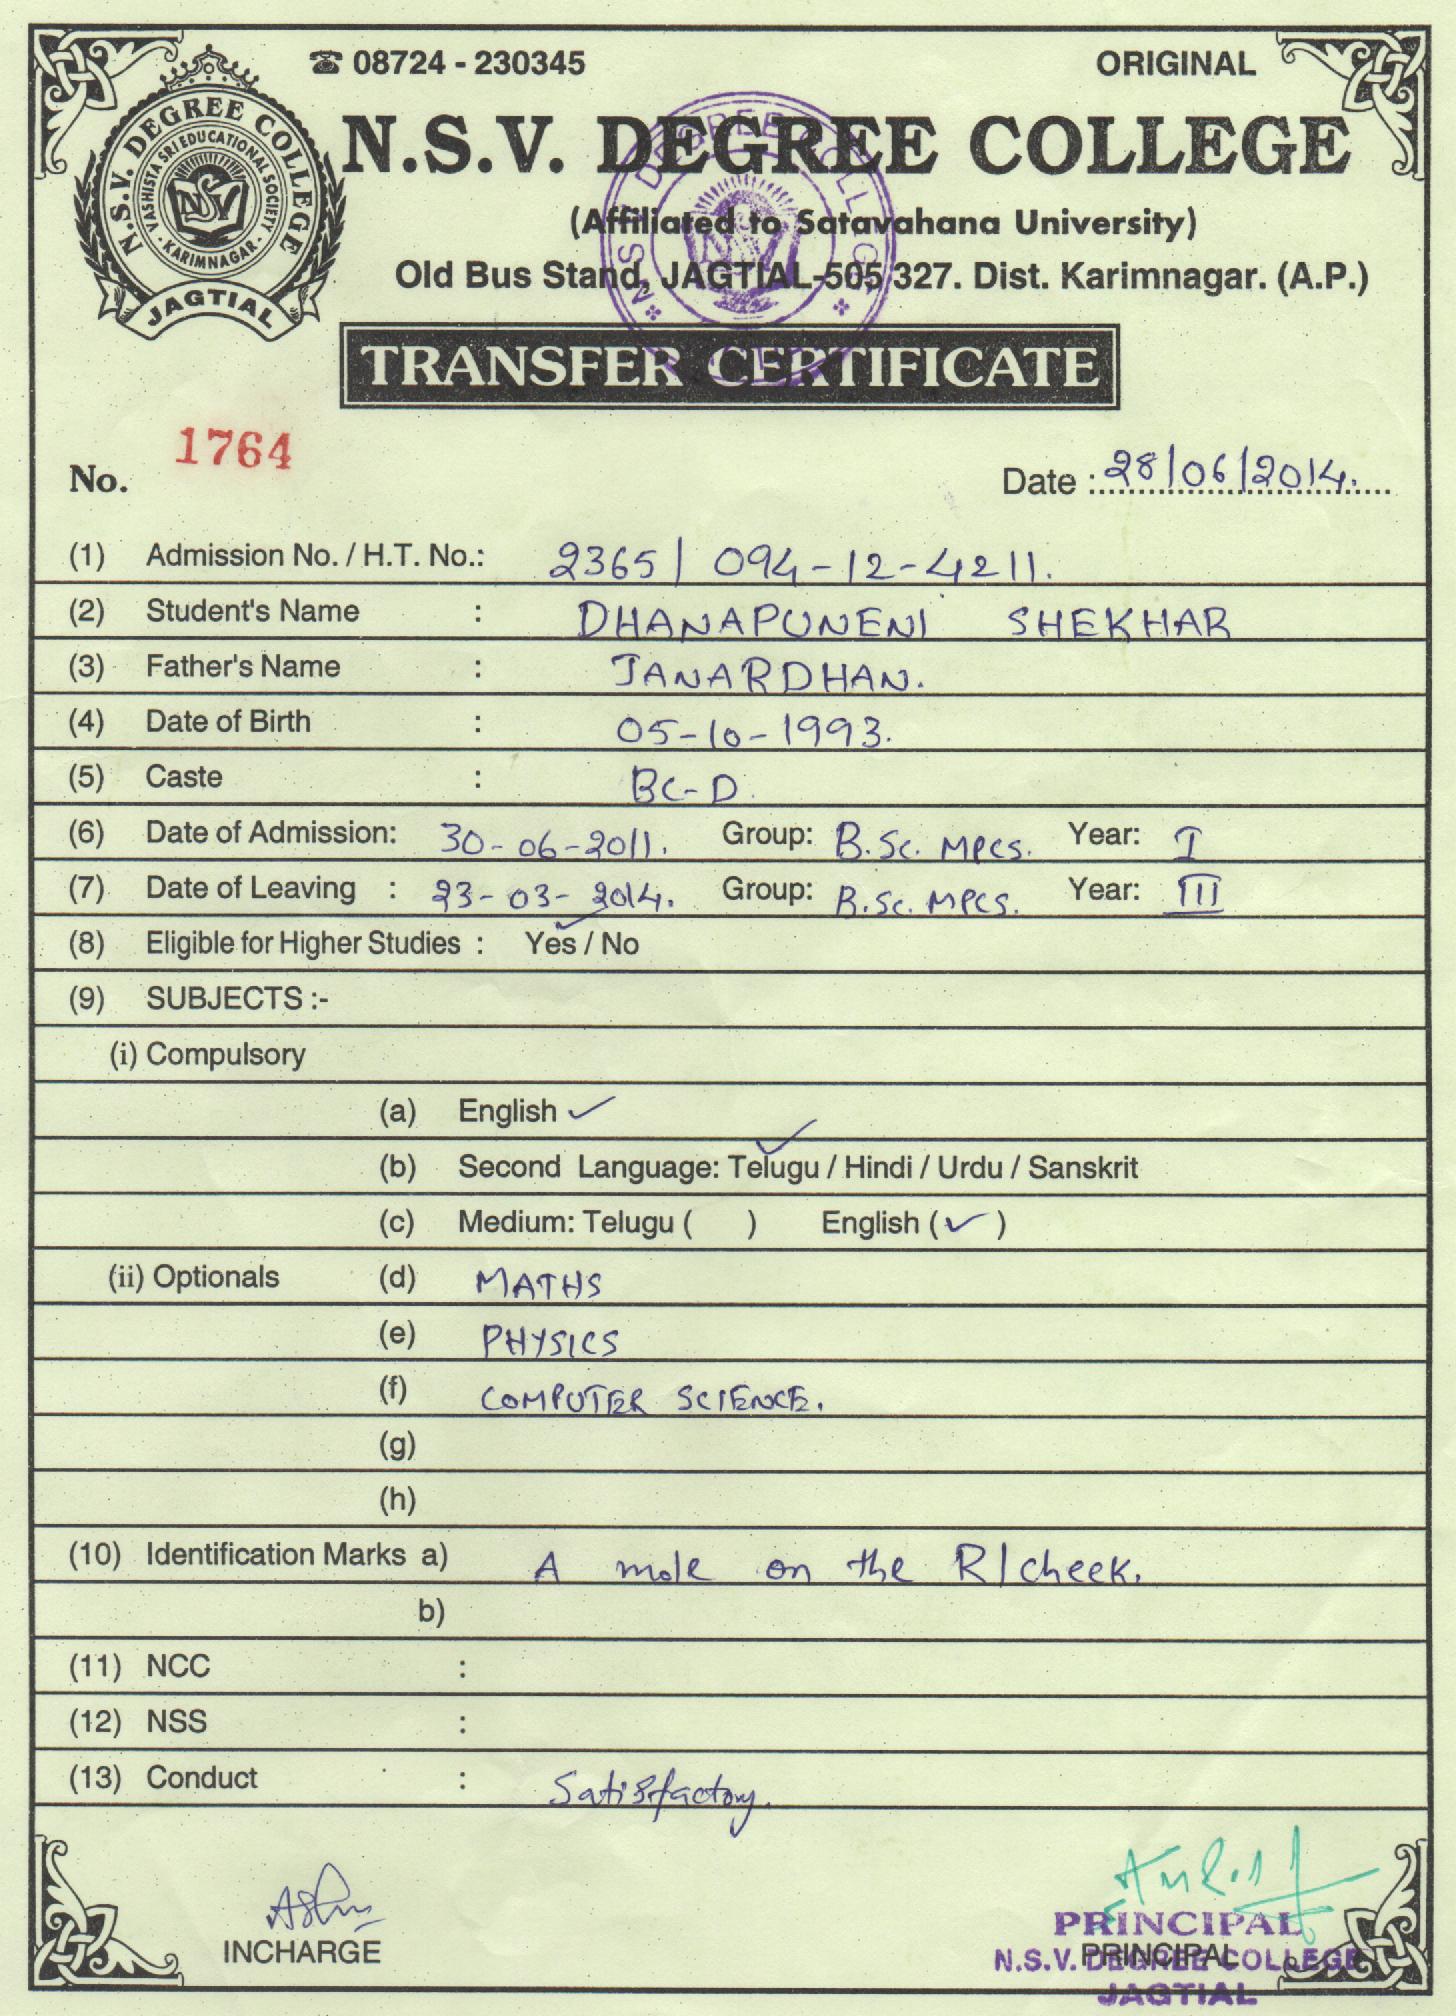 ☎ 08724 - 230345 ORIGINAL
N.S.V. DEGREE COLLEGE
JAGTIAL
VASHISTA SRI EDUCATIONAL SOCIETY
KARIMNAGAR
N.S.V. DEGREE COLLEGE
(Affiliated to Satavahana University)
Old Bus Stand, JAGTIAL-505 327. Dist. Karimnagar. (A.P.)
TRANSFER CERTIFICATE
No. 1764 Date : 28/06/2014.
(1) Admission No. / H.T. No.: 2365 / 094-12-4211.
(2) Student's Name : DHANAPUNENI SHEKHAR
(3) Father's Name : JANARDHAN.
(4) Date of Birth : 05-10-1993.
(5) Caste : BC-D.
(6) Date of Admission: 30-06-2011. Group: B.Sc. MPCS. Year: I
(7) Date of Leaving : 23-03-2014. Group: B.Sc. MPCS. Year: III
(8) Eligible for Higher Studies : Yes / No
(9) SUBJECTS :-
(i) Compulsory
(a) English ✓
(b) Second Language: Telugu / Hindi / Urdu / Sanskrit
(c) Medium: Telugu ( ) English (✓)
(ii) Optionals (d) MATHS
(e) PHYSICS
(f) COMPUTER SCIENCE.
(g)
(h)
(10) Identification Marks a) A mole on the R/cheek.
b)
(11) NCC :
(12) NSS :
(13) Conduct : Satisfactory.
INCHARGE
PRINCIPAL
PRINCIPAL
N.S.V. DEGREE COLLEGE
JAGTIAL